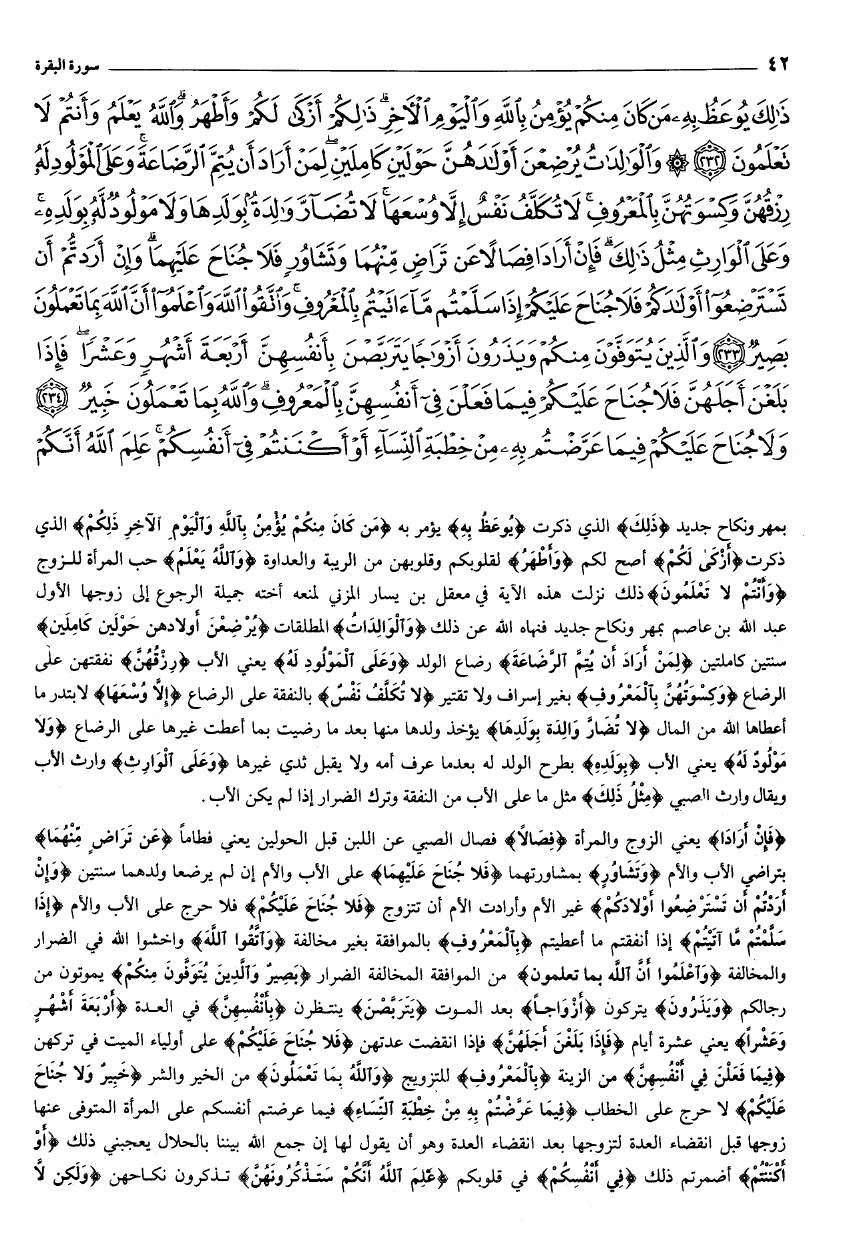 ٤٢ سورة البقرة
ذَٰلِكَ يُوعَظُ بِهِۦ مَن كَانَ مِنكُمْ يُؤْمِنُ بِٱللَّهِ وَٱلْيَوْمِ ٱلْأَخِرِ ۗ ذَٰلِكُمْ أَزْكَىٰ لَكُمْ وَأَطْهَرُ ۗ وَٱللَّهُ يَعْلَمُ وَأَنتُمْ لَا
تَعْلَمُونَ ﴿٢٣٢﴾ ۞ وَٱلْوَٰلِدَٰتُ يُرْضِعْنَ أَوْلَٰدَهُنَّ حَوْلَيْنِ كَامِلَيْنِ ۖ لِمَنْ أَرَادَ أَن يُتِمَّ ٱلرَّضَاعَةَ ۚ وَعَلَى ٱلْمَوْلُودِ لَهُۥ
رِزْقُهُنَّ وَكِسْوَتُهُنَّ بِٱلْمَعْرُوفِ ۚ لَا تُكَلَّفُ نَفْسٌ إِلَّا وُسْعَهَا ۚ لَا تُضَآرَّ وَٰلِدَةٌۢ بِوَلَدِهَا وَلَا مَوْلُودٌ لَّهُۥ بِوَلَدِهِۦ ۚ
وَعَلَى ٱلْوَارِثِ مِثْلُ ذَٰلِكَ ۗ فَإِنْ أَرَادَا فِصَالًا عَن تَرَاضٍ مِّنْهُمَا وَتَشَاوُرٍ فَلَا جُنَاحَ عَلَيْهِمَا ۗ وَإِنْ أَرَدتُّمْ أَن
تَسْتَرْضِعُوٓا۟ أَوْلَٰدَكُمْ فَلَا جُنَاحَ عَلَيْكُمْ إِذَا سَلَّمْتُم مَّآ ءَاتَيْتُم بِٱلْمَعْرُوفِ ۗ وَٱتَّقُوا۟ ٱللَّهَ وَٱعْلَمُوٓا۟ أَنَّ ٱللَّهَ بِمَا تَعْمَلُونَ
بَصِيرٌ ﴿٢٣٣﴾ وَٱلَّذِينَ يُتَوَفَّوْنَ مِنكُمْ وَيَذَرُونَ أَزْوَٰجًا يَتَرَبَّصْنَ بِأَنفُسِهِنَّ أَرْبَعَةَ أَشْهُرٍ وَعَشْرًا ۖ فَإِذَا
بَلَغْنَ أَجَلَهُنَّ فَلَا جُنَاحَ عَلَيْكُمْ فِيمَا فَعَلْنَ فِىٓ أَنفُسِهِنَّ بِٱلْمَعْرُوفِ ۗ وَٱللَّهُ بِمَا تَعْمَلُونَ خَبِيرٌ ﴿٢٣٤﴾
وَلَا جُنَاحَ عَلَيْكُمْ فِيمَا عَرَّضْتُم بِهِۦ مِنْ خِطْبَةِ ٱلنِّسَآءِ أَوْ أَكْنَنتُمْ فِىٓ أَنفُسِكُمْ ۚ عَلِمَ ٱللَّهُ أَنَّكُمْ
بمهر ونكاح جديد ﴿ذَلِكَ﴾ الذي ذكرت ﴿يُوعَظُ بِهِ﴾ يؤمر به ﴿مَن كَانَ مِنكُمْ يُؤْمِنُ بِٱللَّهِ وَٱلْيَوْمِ الآخِرِ ذَلِكُمْ﴾ الذي
ذكرت ﴿أَزْكَىٰ لَكُمْ﴾ أصح لكم ﴿وَأَطْهَرُ﴾ لقلوبكم وقلوبهن من الريبة والعداوة ﴿وَٱللَّهُ يَعْلَمُ﴾ حب المرأة للزوج
﴿وَأَنْتُمْ لا تَعْلَمُونَ﴾ ذلك نزلت هذه الآية في معقل بن يسار المزني لمنعه أخته جميلة الرجوع إلى زوجها الأول
عبد الله بن عاصم بمهر ونكاح جديد فنهاه الله عن ذلك ﴿وَٱلْوَالِدَاتُ﴾ المطلقات ﴿يُرْضِعْنَ أولادهن حَوْلَين كَامِلَين﴾
سنتين كاملتين ﴿لِمَنْ أَرَادَ أَن يُتِمَّ ٱلرَّضَاعَةَ﴾ رضاع الولد ﴿وَعَلَى ٱلْمَوْلُودِ لَهُ﴾ يعني الأب ﴿رِزْقُهُنَّ﴾ نفقتهن على
الرضاع ﴿وَكِسْوَتُهُنَّ بِٱلْمَعْرُوفِ﴾ بغير إسراف ولا تقتير ﴿لا تُكَلَّفُ نَفْسٌ﴾ بالنفقة على الرضاع ﴿إِلَّا وُسْعَهَا﴾ لابتدر ما
أعطاها الله من المال ﴿لا تُضَارَّ وَالِدَة بِوَلَدِهَا﴾ يؤخذ ولدها منها بعد ما رضيت بما أعطت غيرها على الرضاع ﴿وَلَا
مَوْلُودٌ لَهُ﴾ يعني الأب ﴿بِوَلَدِهِ﴾ بطرح الولد له بعدما عرف أمه ولا يقبل ثدي غيرها ﴿وَعَلَى ٱلْوَارِثِ﴾ وارث الأب
ويقال وارث الصبي ﴿مِثْلُ ذَلِكَ﴾ مثل ما على الأب من النفقة وترك الضرار إذا لم يكن الأب.
﴿فَإِنْ أَرَادَا﴾ يعني الزوج والمرأة ﴿فِصَالاً﴾ فصال الصبي عن اللبن قبل الحولين يعني فطاماً ﴿عَن تَرَاضٍ مِّنْهُمَا﴾
بتراضي الأب والأم ﴿وَتَشَاوُرٍ﴾ بمشاورتهما ﴿فَلا جُنَاحَ عَلَيْهِمَا﴾ على الأب والأم إن لم يرضعا ولدهما سنتين ﴿وَإِنْ
أَرَدْتُمْ أَن تَسْتَرْضِعُوا أَوْلادَكُمْ﴾ غير الأم وأرادت الأم أن تتزوج ﴿فَلا جُنَاحَ عَلَيْكُمْ﴾ فلا حرج على الأب والأم ﴿إِذَا
سَلَّمْتُمْ مَّا آتَيْتُمْ﴾ إذا أنفقتم ما أعطيتم ﴿بِٱلْمَعْرُوفِ﴾ بالموافقة بغير مخالفة ﴿وَٱتَّقُوا ٱللَّهَ﴾ واخشوا الله في الضرار
والمخالفة ﴿وَٱعْلَمُوا أَنَّ ٱللَّه بما تعلمون﴾ من الموافقة المخالفة الضرار ﴿بَصِيرٌ وَٱلَّذِينَ يُتَوَفَّونَ مِنكُمْ﴾ يموتون من
رجالكم ﴿وَيَذَرُونَ﴾ يتركون ﴿أَزْوَاجاً﴾ بعد الموت ﴿يَتَرَبَّصْنَ﴾ ينتظرن ﴿بِأَنْفُسِهِنَّ﴾ في العدة ﴿أَرْبَعَةَ أَشْهُرٍ
وَعَشْراً﴾ يعني عشرة أيام ﴿فَإِذَا بَلَغْنَ أَجَلَهُنَّ﴾ فإذا انقضت عدتهن ﴿فَلا جُنَاحَ عَلَيْكُمْ﴾ على أولياء الميت في تركهن
﴿فِيمَا فَعَلْنَ فِي أَنْفُسِهِنَّ﴾ من الزينة ﴿بِٱلْمَعْرُوفِ﴾ للتزويج ﴿وَٱللَّهُ بِمَا تَعْمَلُونَ﴾ من الخير والشر ﴿خَبِيرٌ وَلا جُنَاحَ
عَلَيْكُمْ﴾ لا حرج على الخطاب ﴿فِيمَا عَرَّضْتُمْ بِهِ مِنْ خِطْبَةِ ٱلنِّسَاءِ﴾ فيما عرضتم أنفسكم على المرأة المتوفى عنها
زوجها قبل انقضاء العدة لتزوجها بعد انقضاء العدة وهو أن يقول لها إن جمع الله بيننا بالحلال يعجبني ذلك ﴿أَوْ
أَكْنَنْتُمْ﴾ أضمرتم ذلك ﴿فِي أَنْفُسِكُمْ﴾ في قلوبكم ﴿عَلِمَ ٱللَّهُ أَنَّكُمْ سَتَذْكُرُونَهُنَّ﴾ تذكرون نكاحهن ﴿وَلَكِن لَّا